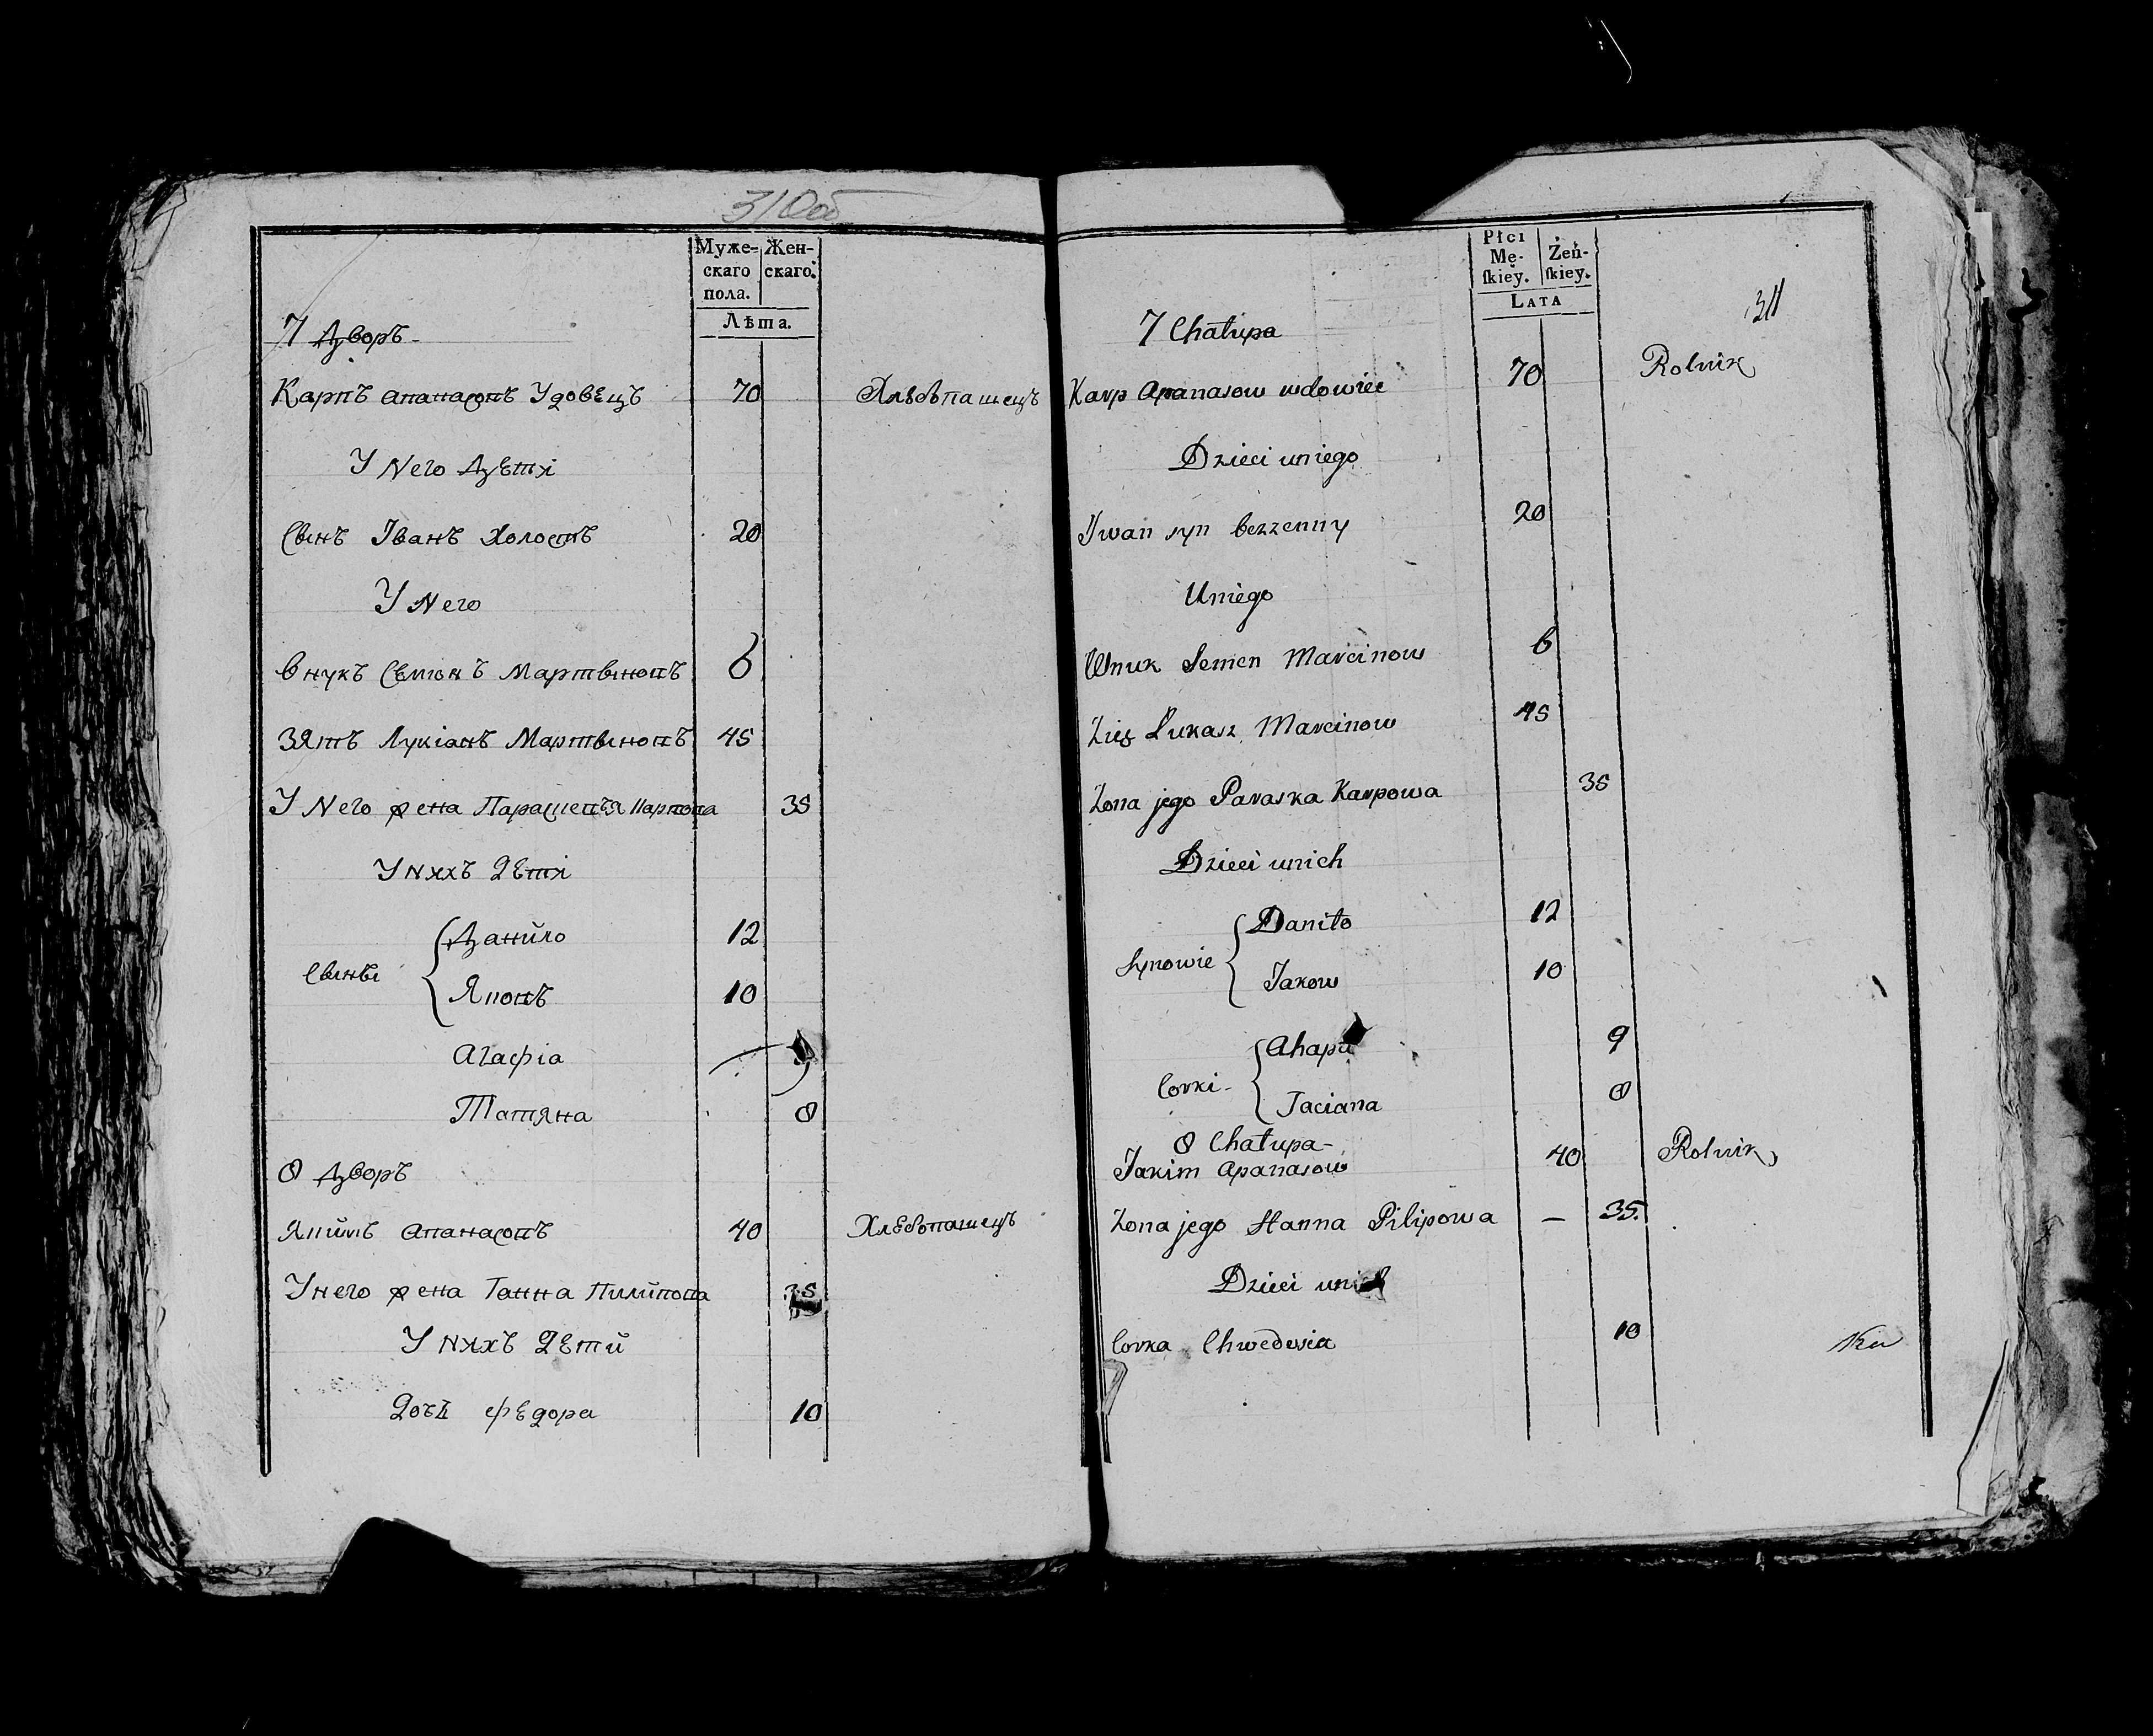 310об
Муже-
скаго
пола.
Жен-
скаго.
Лѣта.
7 Дворъ
Карпъ апанасовъ Удовецъ 70 Хлѣбопашецъ
У Nего Дѣти
Сынъ Іванъ Холостъ 20
У Nего
Внукъ Семіонъ Мартыновъ 6
Зятъ Лукіанъ Мартыновъ 45
У Nего жена Парасковъя Карпова 35
У Nихъ Дети
Сыны { Данило 12
Яковъ 10
Агафіа 9
Татяна 8
8 Дворъ
Якимъ апанасовъ 40 Хлебопашецъ
У него жена Ганна Пилипова 35
У Nихъ Дети
Дочь федора 10
Płci
Mę-
ſkiey.
Żeń-
ſkiey.
LATA
311
7 Chałupa
Karp Apanasow wdowiec 70 Rolnik
Dzieci uniego
Jwan syn bezzenny 20
Uniego
Wnuk Semen Marcinow 6
Zięc Łukasz Marcinow 45
Zona jego Paraska Karpowa 35
Dzieci unich
Synowie { Daniło 12
Jakow 10
Corki { Ahapa 9
Taciana 8
8 Chałupa
Jakim Apanasow 40 Rolnik
Zona jego Hanna Pilipowa — 35.
Dzieci unich
Corka Chwedosia 10